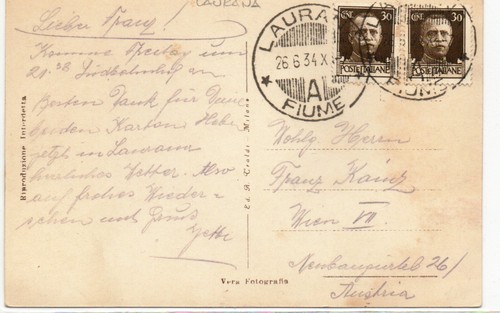 LAURANA
Lieber Franz!
Komme Freitag um
21.38 Südbahnhof an
Besten Dank für Deine
beiden Karten. Habe
jetzt in Laurana
herrliches Wetter. Also
auf frohes Wieder-
sehen und Gruß
Riproduzione Interdetta
Milano
Vera Fotografia
LAURA
26.6.34.X
A
FIUME
30
POSTE ITALIANE
30
POSTE ITALIANE
FIUME
Wohlg. Herrn
Franz Kainz
Wien VII.
Neubaugürtel 26/
Austria